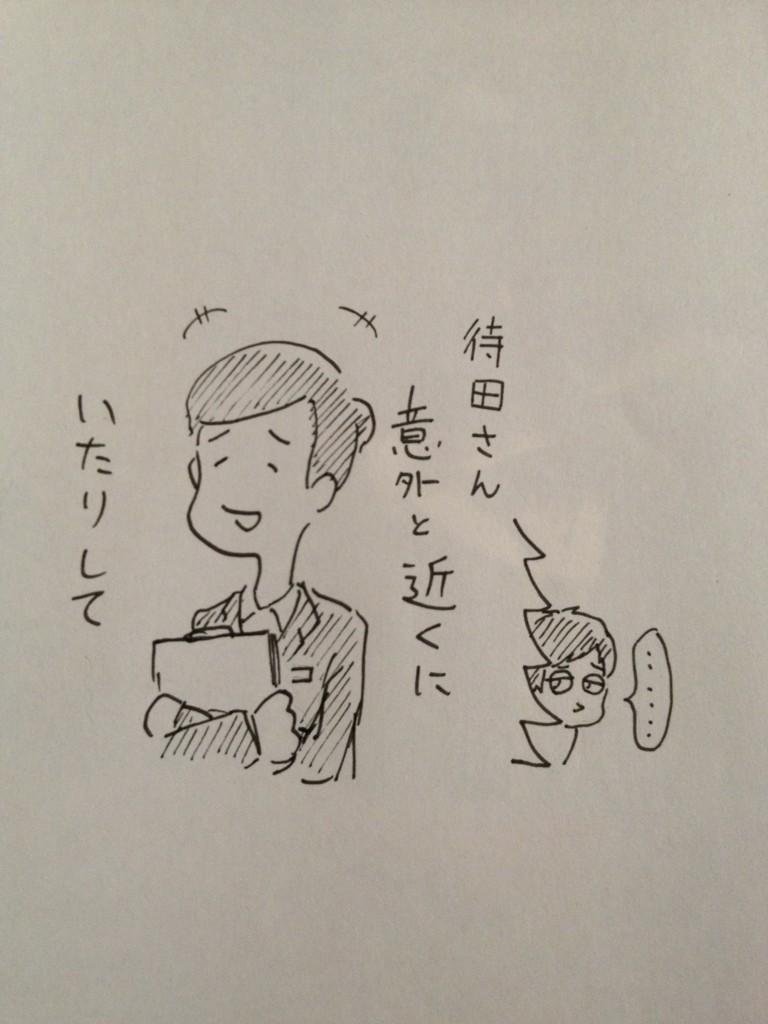 待田さん
意外と近くに
いたりして
……